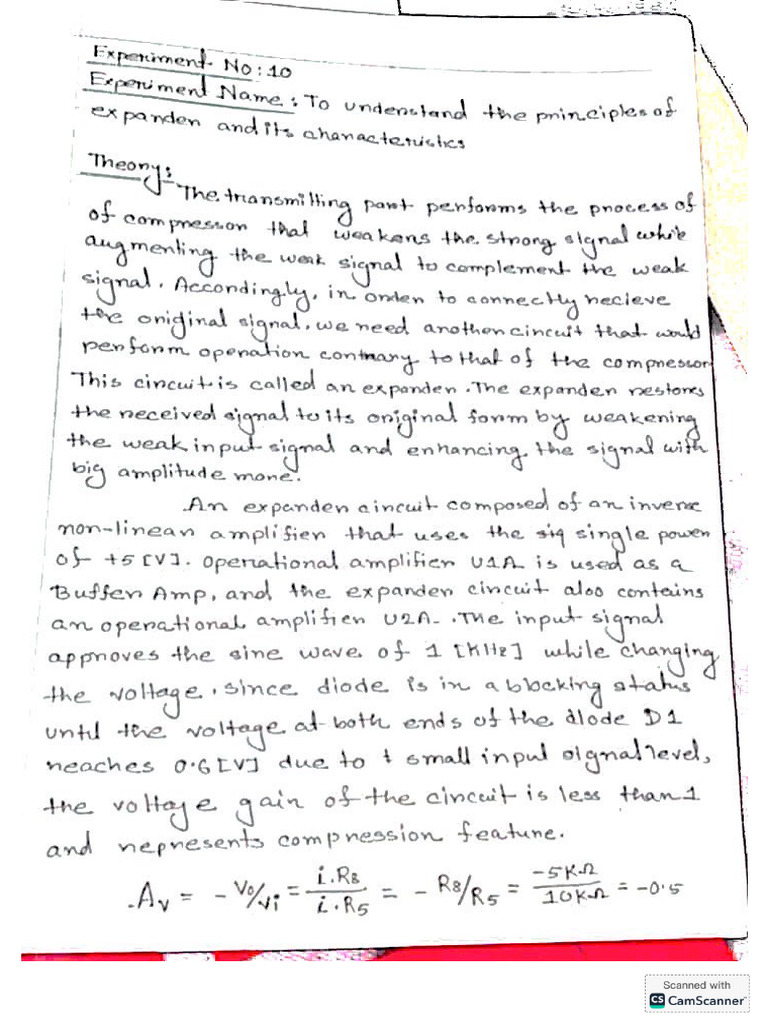 Experiment No: 10
Experiment Name: To understand the principles of
expander and its characteristics
Theory:
The transmilling part performs the process of
of compressor that weakens the strong signal while
augmenting the weak signal to complement the weak
signal. Accordingly, in order to connectly recieve
the original signal, we need another circuit that would
perform operation contrary to that of the compressor
This circuit is called an expander. The expander restores
the received signal to its original form by weakening
the weak input signal and enhancing the signal with
big amplitude more.
An expander circuit composed of an inverse
non-linear amplifier that uses the sig single power
of +5 [V]. Operational amplifier U1A is used as a
Buffer Amp, and the expander circuit also contains
an operational amplifier U2A. The input signal
approves the sine wave of 1 [KHz] while changing
the voltage. Since diode is in a blocking status
until the voltage at both ends of the diode D1
reaches 0.6 [V] due to t small input signal level,
the voltage gain of the circuit is less than 1
and represents compression feature.
.Av = - Vo/Vi = i.R8 / i.R5 = - R8/R5 = -5KΩ / 10KΩ = -0.5
Scanned with
CS CamScanner